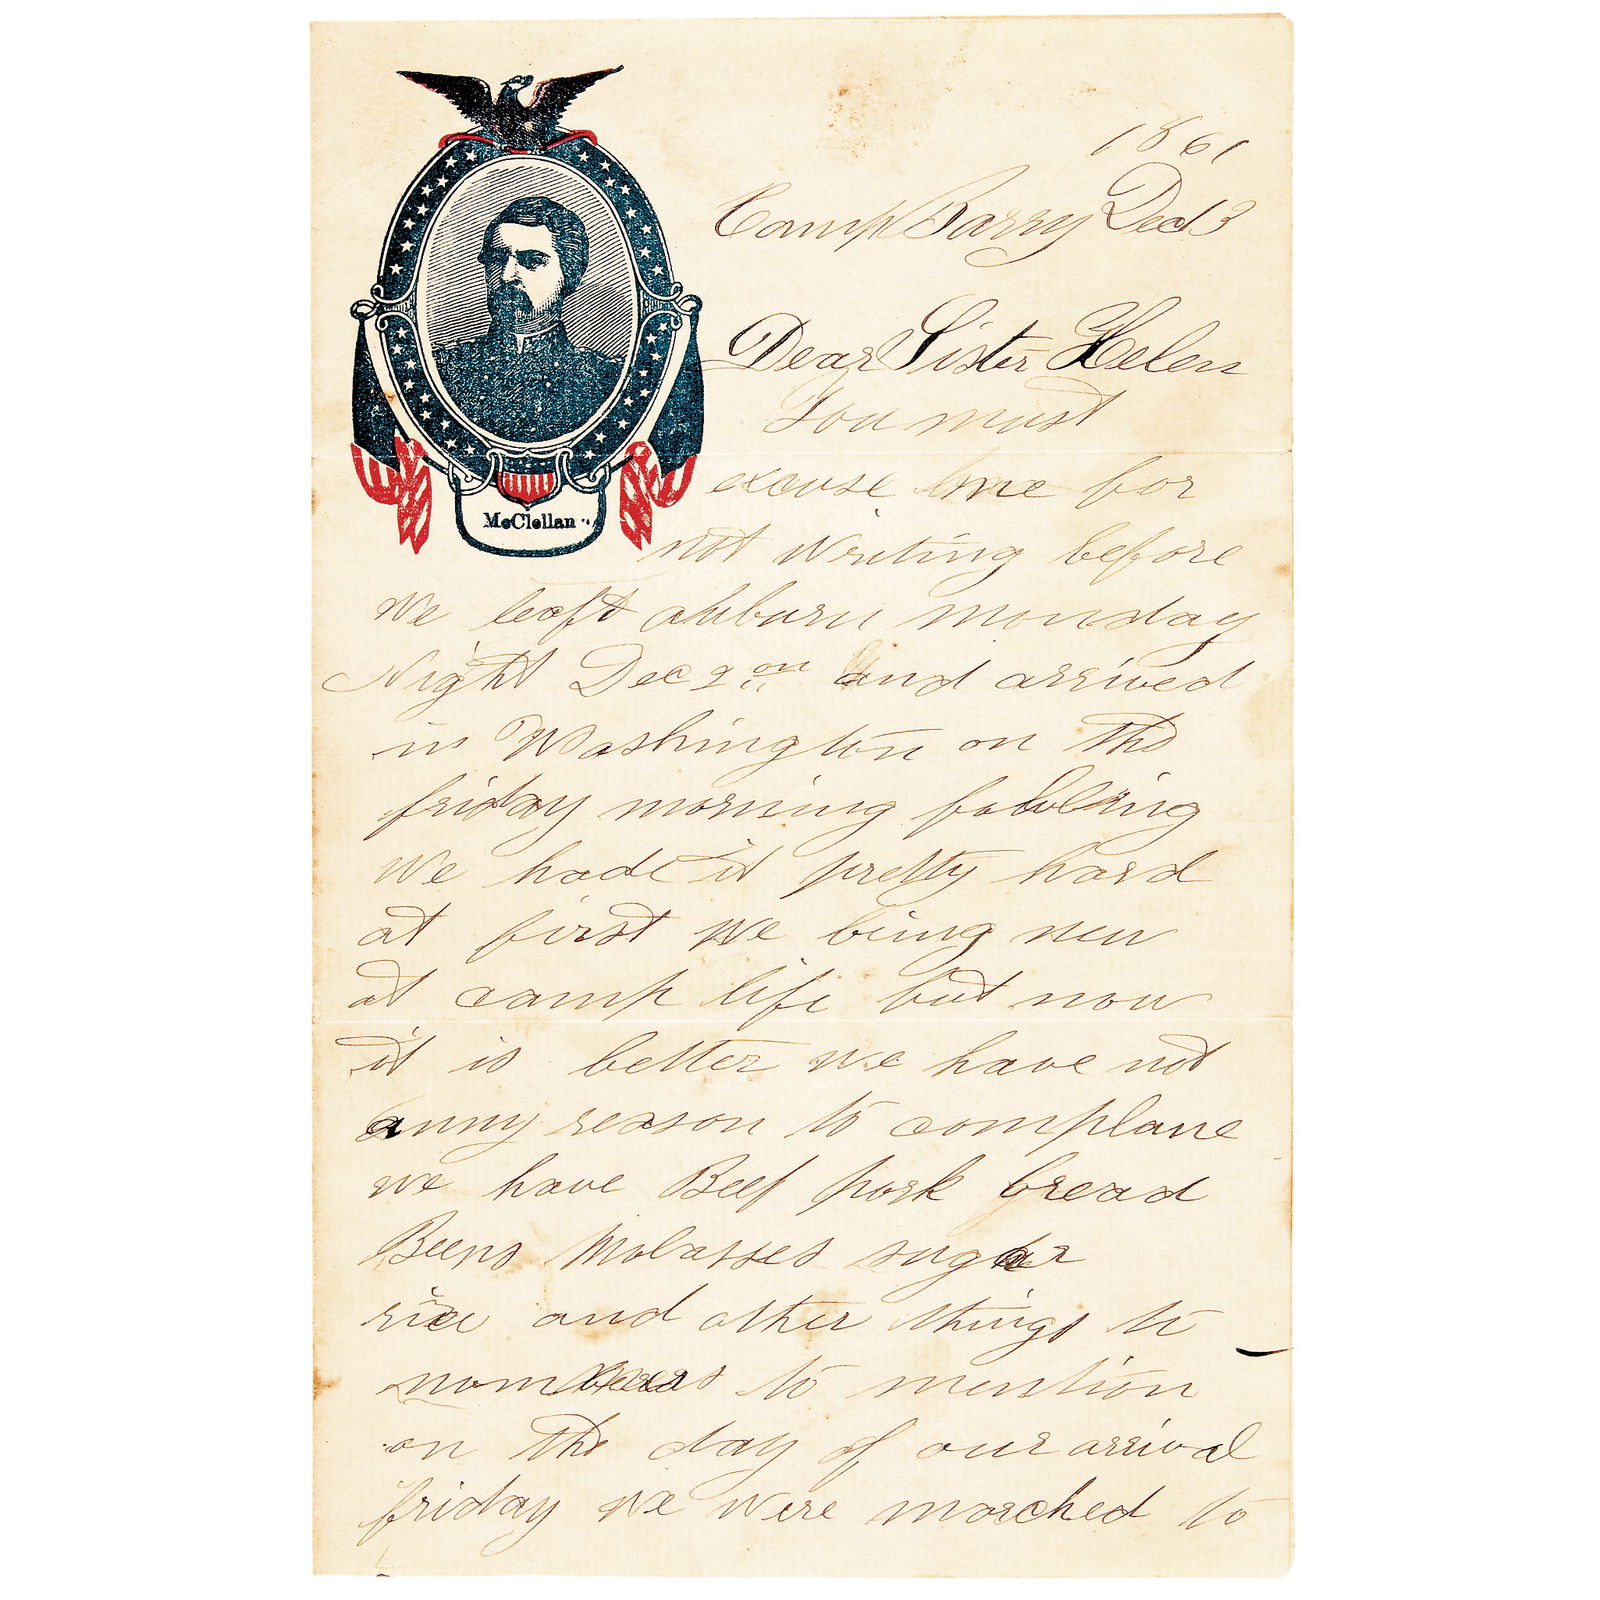 1861
Camp Barry Dec 13
Dear Sister Helen
You must
excuse me for
McClellan
not writing before
we left auburn monday
Night Dec 2 on and arrived
in Washington on the
friday morning following
we had it pretty hard
at first we being new
at camp life but now
it is better we have not
anny reason to complane
we have Beef pork bread
Beens Molasses sugar
rice and other things to
to mention
on the day of our arrival
friday we were marched to